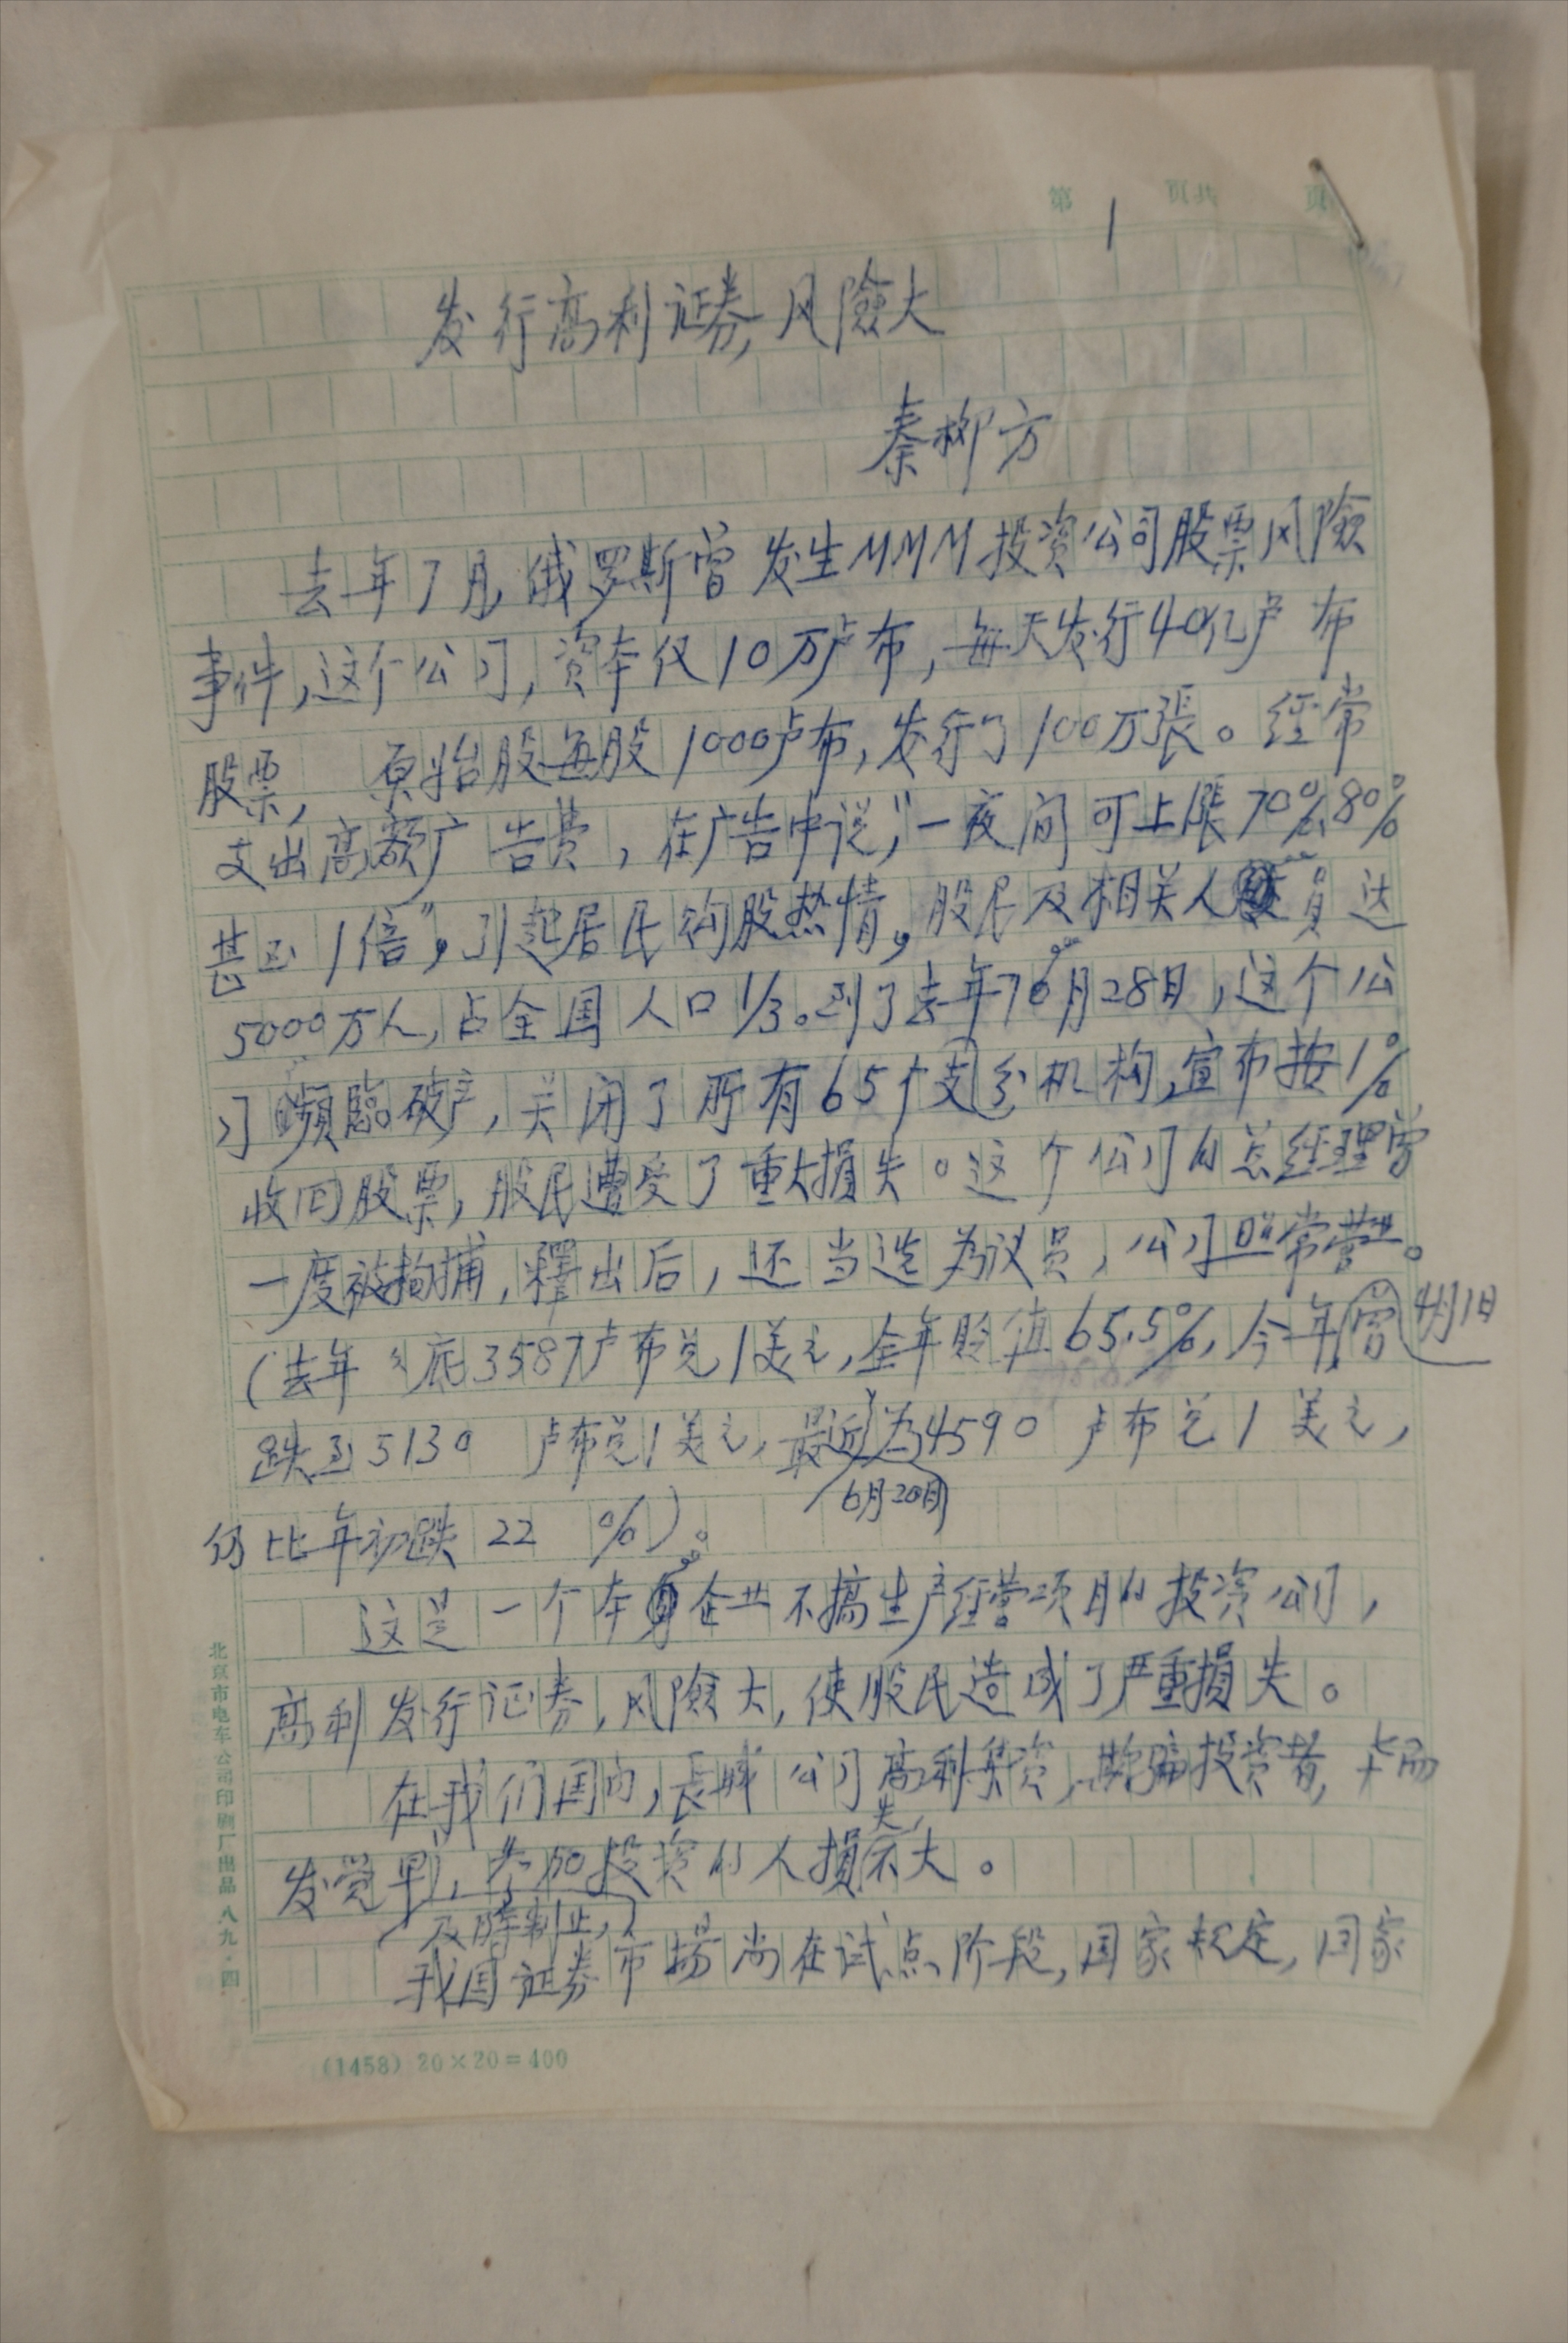 第 1 页共 页
发行高利证券,风險大
秦柳方
去年7月,俄罗斯曾发生MMM投资公司股票风險
事件,这个公司,资本仅10万卢布,每天发行40亿卢布
股票, 原始股每股1000卢布,发行了100万張。经常
支出高额广告费,在广告中说,“一夜间可上漲70%,80%
甚至1倍”,引起居民购股热情,股民及相关人员达
5000万人,占全国人口1/3。到了去年7月28日,这个公
司瀕臨破产,关闭了所有65个支分机构,宣布按1%
收回股票,股民遭受了重大損失。这个公司的总经理曾
一度被拘捕,釋出后,还当选为议员,公司照常营业。
(去年底3587卢布兑1美元,全年贬值65.5%,今年曾4月1日
跌至5130 卢布兑1美元,最近为4590 卢布兑1美元,
6月20日
仍比年初跌22 %)。
这是一个本身企业不搞生产经营项目的投资公司,
高利发行证券,风險大,使股民造成了严重損失。
在我们国内,長城公司高利集资,欺骗投资者,幸而
发觉早,参加投资的人損失不大。
及時制止,
我国证券市場尚在试点阶段,国家规定,国家
北京市电车公司印刷厂出品 八九·四
(1458) 20×20=400